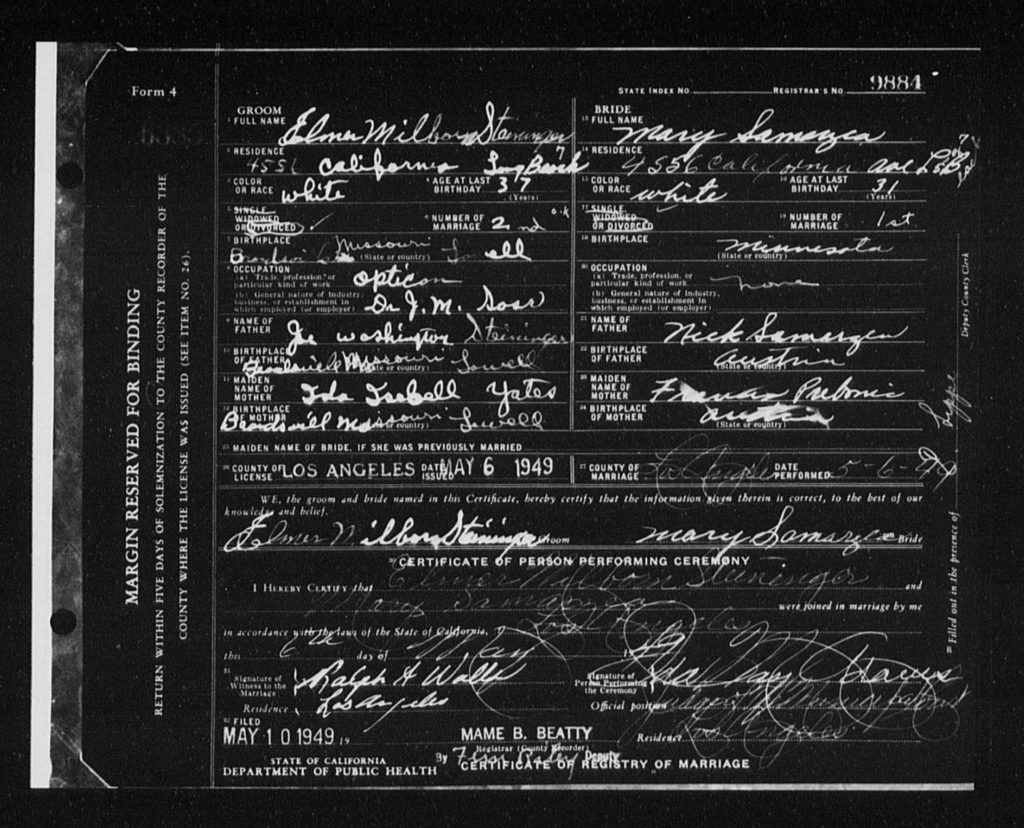 Form 4
STATE INDEX No REGISTRAR'S No 9884
GROOM
1 FULL NAME Elmer Milborn Steininger
BRIDE
13 FULL NAME Mary Samarzea
2 RESIDENCE 4556 California Long Beach 7
14 RESIDENCE 4556 California ave L.B. 7
3 COLOR OR RACE white 4 AGE AT LAST BIRTHDAY 37 (Years)
15 COLOR OR RACE white 16 AGE AT LAST BIRTHDAY 31 (Years)
5 SINGLE WIDOWED OR DIVORCED ✓ 6 NUMBER OF MARRIAGE 2nd o.k
17 SINGLE WIDOWED OR DIVORCED 18 NUMBER OF MARRIAGE 1st
7 BIRTHPLACE Missouri (State or country)
19 BIRTHPLACE Minnesota (State or country)
8 OCCUPATION
(a) Trade, profession, or particular kind of work optican
(b) General nature of Industry, business, or establishment in which employed (or employer) Dr J. M. Soss
20 OCCUPATION
(a) Trade, profession, or particular kind of work none
(b) General nature of Industry, business, or establishment in which employed (or employer)
9 NAME OF FATHER Joe Washington Steininger
21 NAME OF FATHER Nick Samarzea
10 BIRTHPLACE OF FATHER Missouri Lowell (State or country)
22 BIRTHPLACE OF FATHER Austria (State or country)
11 MAIDEN NAME OF MOTHER Ida Isabell Yates
23 MAIDEN NAME OF MOTHER Frances Prebonic
12 BIRTHPLACE OF MOTHER Missouri Lowell (State or country)
24 BIRTHPLACE OF MOTHER Austria (State or country)
25 MAIDEN NAME OF BRIDE, IF SHE WAS PREVIOUSLY MARRIED
26 COUNTY OF LICENSE LOS ANGELES DATE ISSUED MAY 6 1949
27 COUNTY OF MARRIAGE Los Angeles DATE PERFORMED 5-6-49
WE, the groom and bride named in this Certificate, hereby certify that the information given therein is correct, to the best of our
knowledge and belief.
Elmer Milborn Steininger Groom Mary Samarzea Bride
29 CERTIFICATE OF PERSON PERFORMING CEREMONY
I HEREBY CERTIFY that Elmer Milborn Steininger and
Mary Samarzea were joined in marriage by me
in accordance with the laws of the State of California, Los Angeles
this 6th day of May 19
31 Signature of Witness to the Marriage Ralph H Walls
Residence Los Angeles
Signature of Person Performing the Ceremony Ida May C Harris
Official position
Residence Los Angeles
32 FILED
MAY 10 1949 19
MAME B. BEATTY
Registrar (County Recorder)
By Deputy
STATE OF CALIFORNIA
DEPARTMENT OF PUBLIC HEALTH
CERTIFICATE OF REGISTRY OF MARRIAGE
MARGIN RESERVED FOR BINDING
RETURN WITHIN FIVE DAYS OF SOLEMNIZATION TO THE COUNTY RECORDER OF THE
COUNTY WHERE THE LICENSE WAS ISSUED (SEE ITEM NO. 26).
Filled out in the presence of
Deputy County Clerk